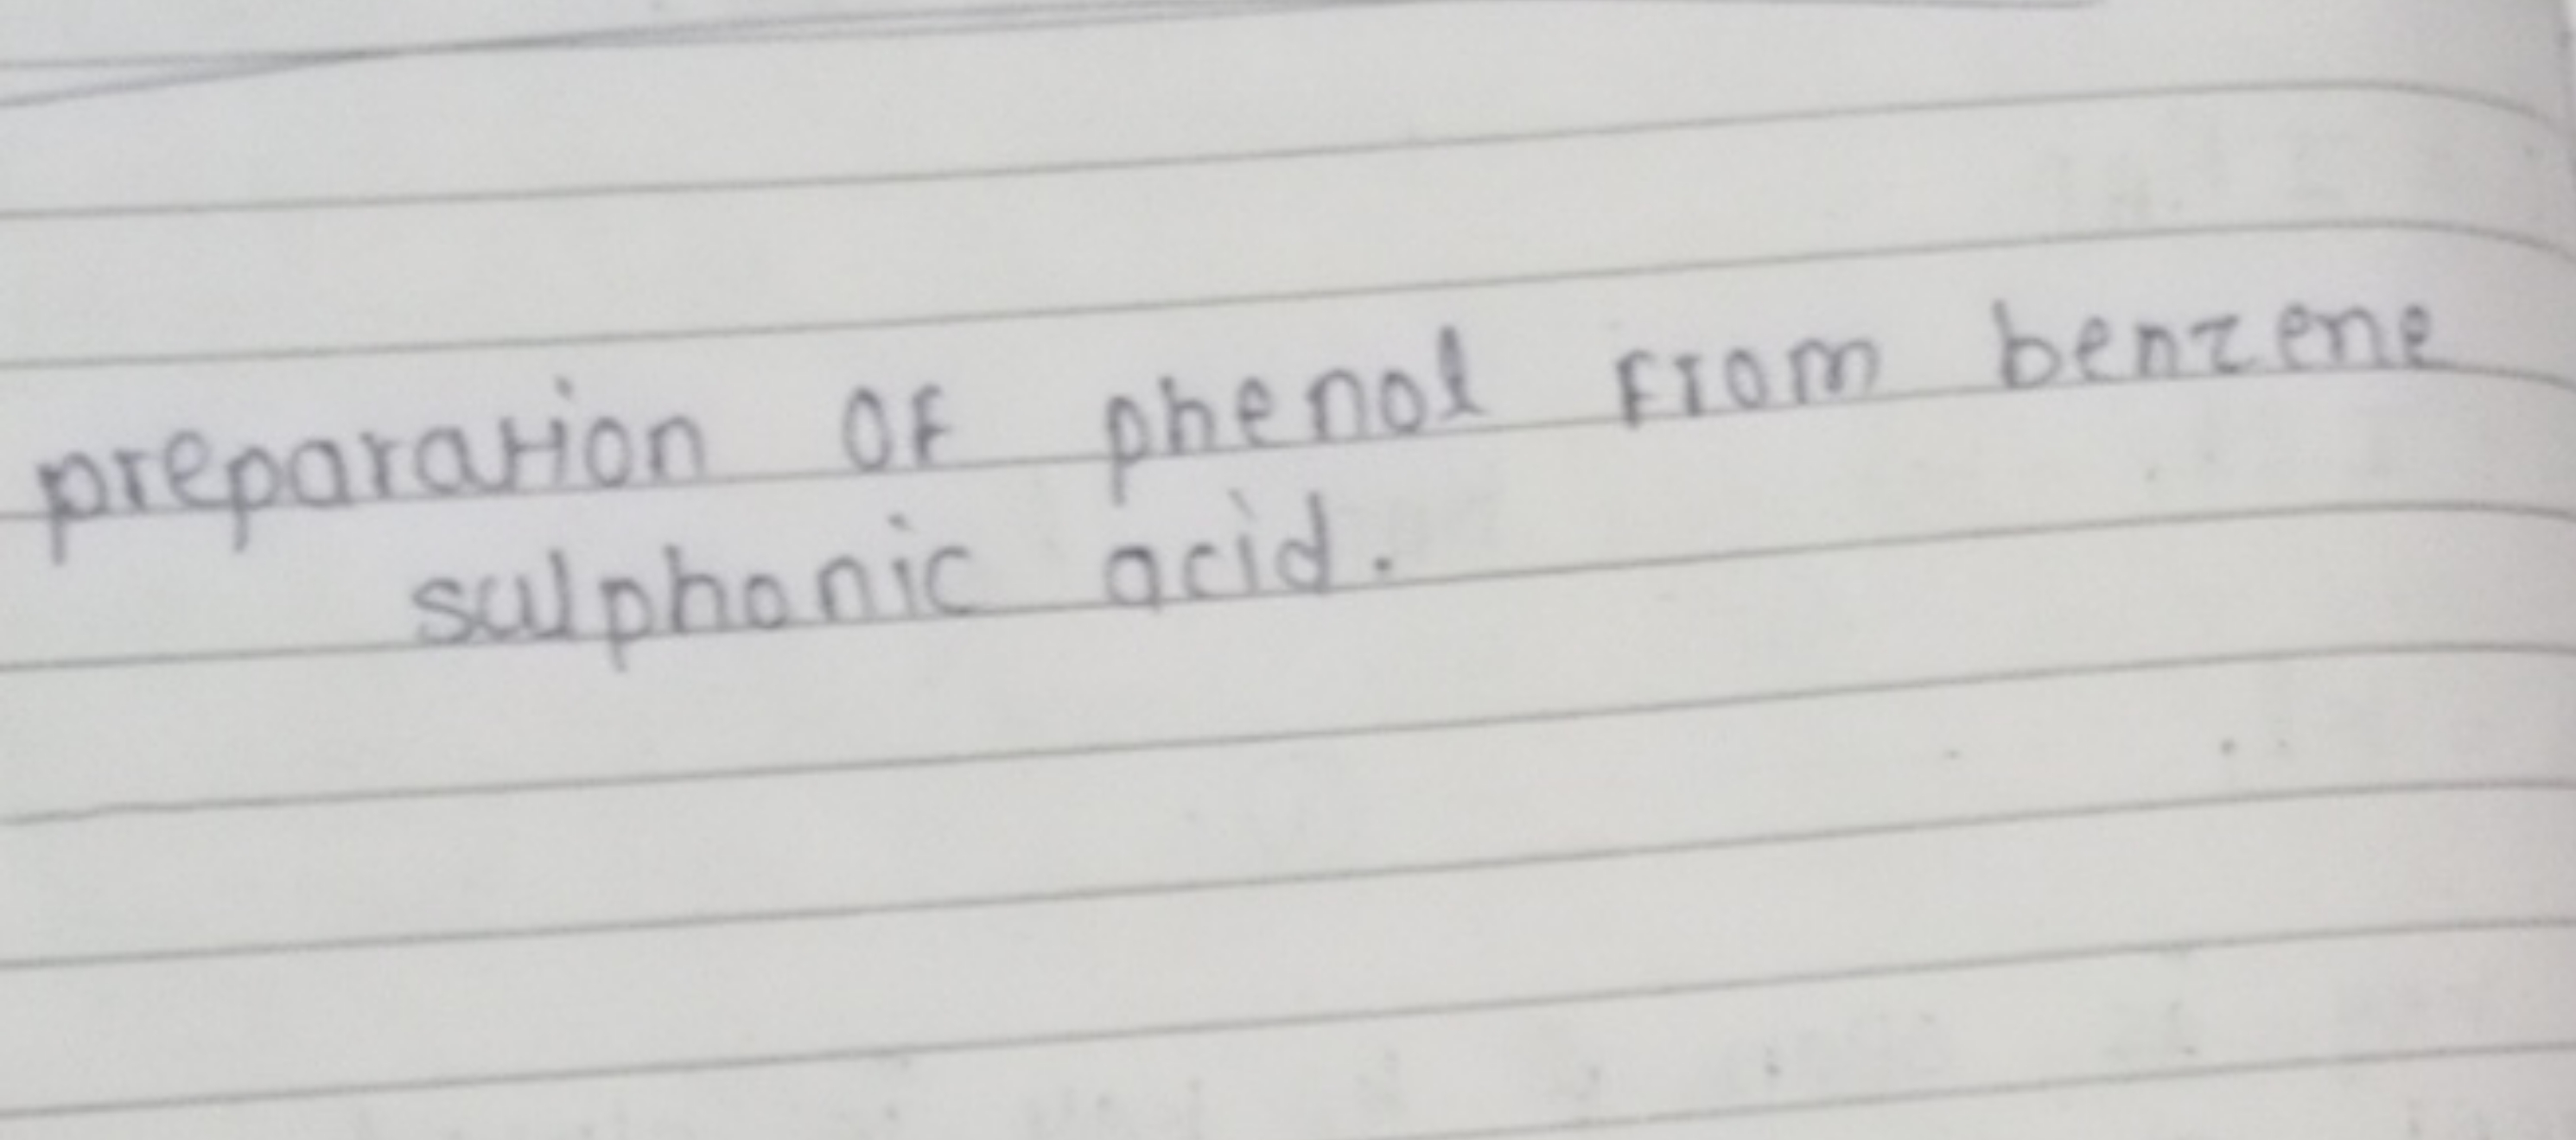 preparation of phenol from benzene
sulphonic acid.